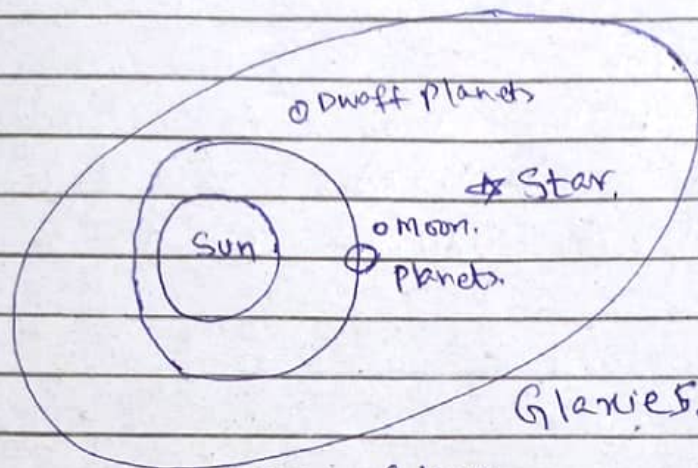 Dwaff Planets
Star.
Sun
Moon.
Planets.
Glaxies.